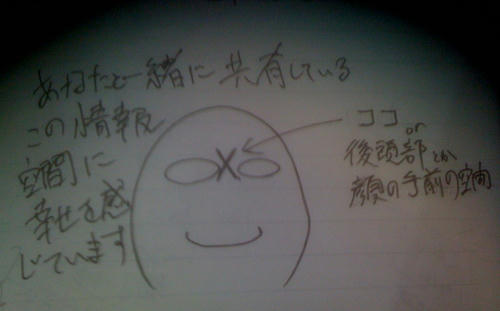 あなたと一緒に共有している
この情報
空間に
幸せを感
じています
X
ココ
or
後頭部とか
顔の手前の空間